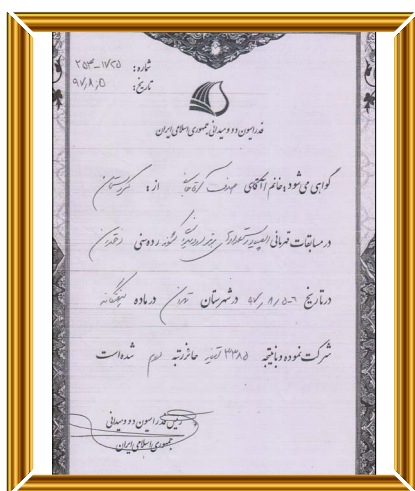 شماره: ۱۷۲۵-۲۵۳
تاریخ: ۹۷٫۸٫۵
فدراسیون دو و میدانی جمهوری اسلامی ایران
گواهی می شود: خانم / آقای هدف از: کردستان
در مسابقات قهرمانی المپیاد استعدادهای برتر کشور رده سنی
در تاریخ ۶-۵ ٫ ۸ ٫ ۹۷ در شهرستان تهران در ماده پنجگانه
شرکت نموده و با نتیجه ۳۳۸۵ امتیاز حائز رتبه سوم شده است
رئیس فدراسیون دو و میدانی
جمهوری اسلامی ایران